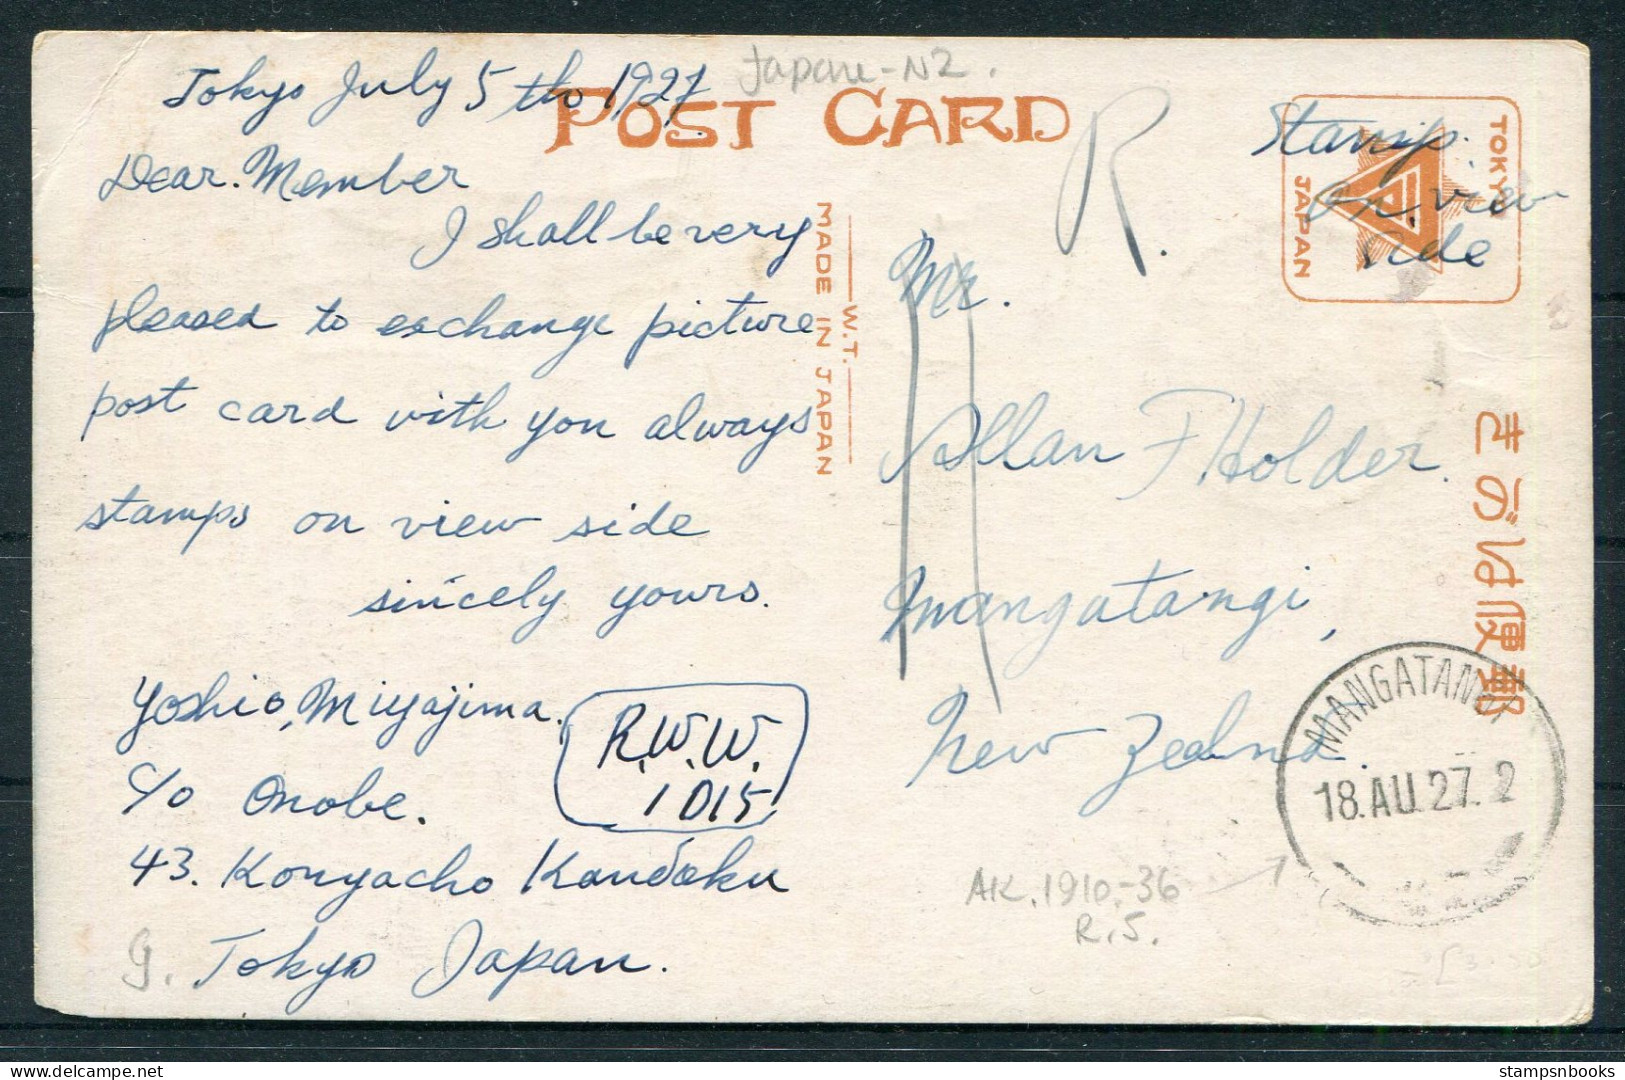 Japan-NZ.
Tokyo July 5 th 1927
POST CARD
Dear. Member
I shall be very
pleased to exchange picture
post card with you always
stamps on view side
sincely yours.
Yoshio, Miyajima.
c/o Onobe.
43. Konyacho Kandaku
g. Tokyo Japan.
R.W.W.
1015
MADE IN JAPAN
W.T.
R.
Stamp.
On. view
side
TOKYO
JAPAN
Mr.
Allan F. Holder.
Mangatangi,
New Zealand.
きがは便郵
MANGATANGI
18.AU.27.2
AK.1910-36
R.S.
stampsnbooks